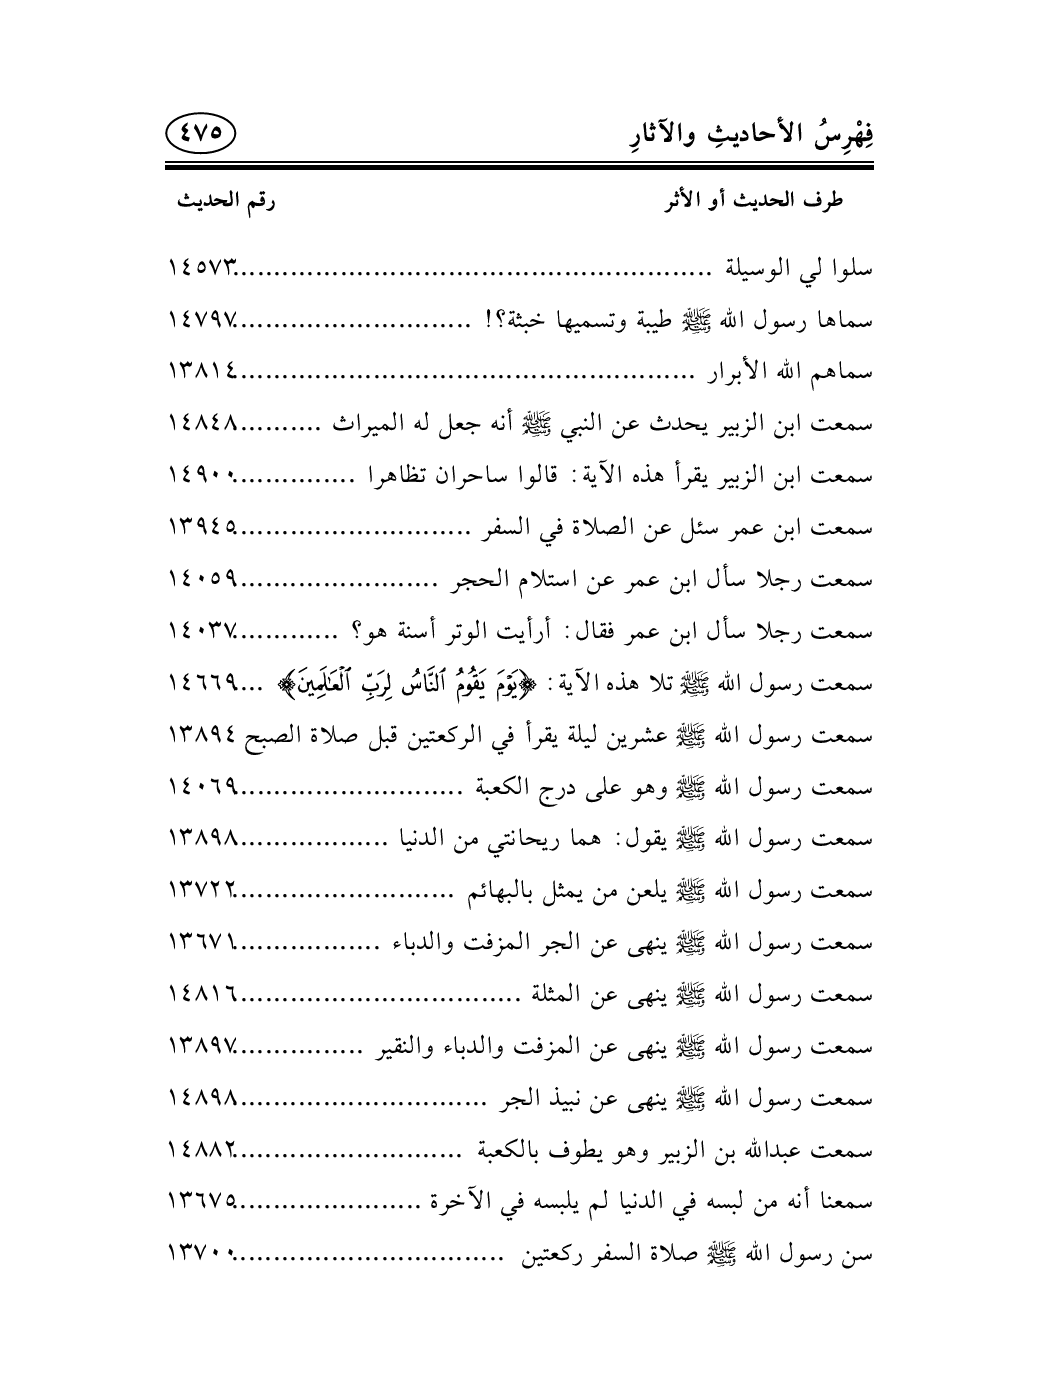 فِهْرِسُ الأحاديثِ والآثارِ ٤٧٥
طرف الحديث أو الأثر رقم الحديث
سلوا لي الوسيلة ..........................................................١٤٥٧٣
سماها رسول الله ﷺ طيبة وتسميها خبثة؟! .............................١٤٧٩٧
سماهم الله الأبرار .......................................................١٣٨١٤
سمعت ابن الزبير يحدث عن النبي ﷺ أنه جعل له الميراث ..........١٤٨٤٨
سمعت ابن الزبير يقرأ هذه الآية: قالوا ساحران تظاهرا ...............١٤٩٠٠
سمعت ابن عمر سئل عن الصلاة في السفر ............................١٣٩٤٥
سمعت رجلا سأل ابن عمر عن استلام الحجر ........................١٤٠٥٩
سمعت رجلا سأل ابن عمر فقال: أرأيت الوتر أسنة هو؟ .............١٤٠٣٧
سمعت رسول الله ﷺ تلا هذه الآية: ﴿يَوْمَ يَقُومُ ٱلنَّاسُ لِرَبِّ ٱلْعَٰلَمِينَ﴾ ...١٤٦٦٩
سمعت رسول الله ﷺ عشرين ليلة يقرأ في الركعتين قبل صلاة الصبح ١٣٨٩٤
سمعت رسول الله ﷺ وهو على درج الكعبة ...........................١٤٠٦٩
سمعت رسول الله ﷺ يقول: هما ريحانتي من الدنيا ..................١٣٨٩٨
سمعت رسول الله ﷺ يلعن من يمثل بالبهائم ...........................١٣٧٢٢
سمعت رسول الله ﷺ ينهى عن الجر المزفت والدباء ..................١٣٦٧١
سمعت رسول الله ﷺ ينهى عن المثلة ..................................١٤٨١٦
سمعت رسول الله ﷺ ينهى عن المزفت والدباء والنقير ................١٣٨٩٧
سمعت رسول الله ﷺ ينهى عن نبيذ الجر ..............................١٤٨٩٨
سمعت عبدالله بن الزبير وهو يطوف بالكعبة ............................١٤٨٨٢
سمعنا أنه من لبسه في الدنيا لم يلبسه في الآخرة .......................١٣٦٧٥
سن رسول الله ﷺ صلاة السفر ركعتين .................................١٣٧٠٠